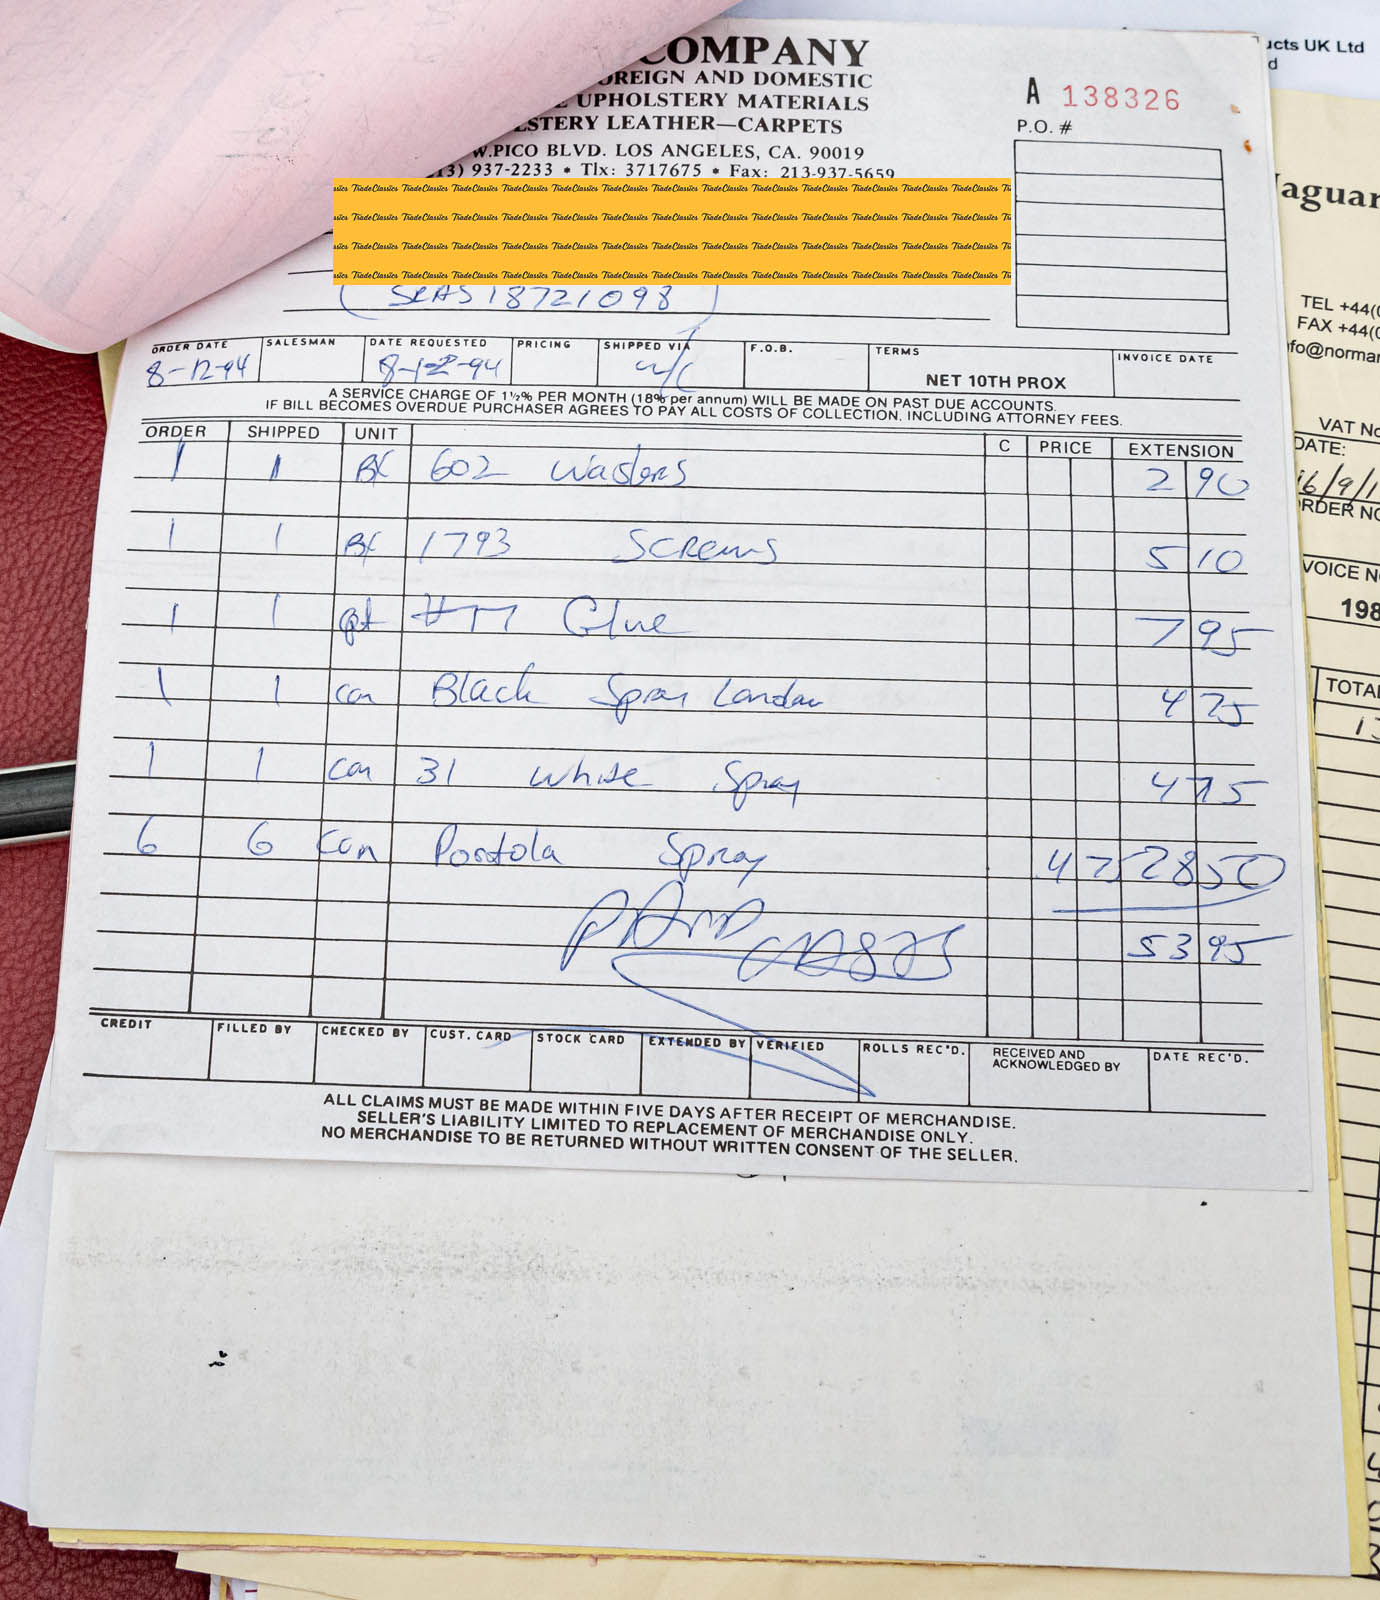 COMPANY
FOREIGN AND DOMESTIC
UPHOLSTERY MATERIALS
LSTERY LEATHER—CARPETS
W.PICO BLVD. LOS ANGELES, CA. 90019
13) 937-2233 • Tlx: 3717675 • Fax: 213-937-5659
A 138326
P.O. #
TradeClassics TradeClassics TradeClassics TradeClassics TradeClassics TradeClassics TradeClassics TradeClassics TradeClassics TradeClassics TradeClassics TradeClassics TradeClassics
TradeClassics TradeClassics TradeClassics TradeClassics TradeClassics TradeClassics TradeClassics TradeClassics TradeClassics TradeClassics TradeClassics TradeClassics TradeClassics
TradeClassics TradeClassics TradeClassics TradeClassics TradeClassics TradeClassics TradeClassics TradeClassics TradeClassics TradeClassics TradeClassics TradeClassics TradeClassics
TradeClassics TradeClassics TradeClassics TradeClassics TradeClassics TradeClassics TradeClassics TradeClassics TradeClassics TradeClassics TradeClassics TradeClassics TradeClassics
ORDER DATE SALESMAN DATE REQUESTED PRICING SHIPPED VIA F.O.B. TERMS INVOICE DATE
8-12-94 8-12-94 w/c NET 10TH PROX
A SERVICE CHARGE OF 1½% PER MONTH (18% per annum) WILL BE MADE ON PAST DUE ACCOUNTS.
IF BILL BECOMES OVERDUE PURCHASER AGREES TO PAY ALL COSTS OF COLLECTION, INCLUDING ATTORNEY FEES.
ORDER SHIPPED UNIT C PRICE EXTENSION
1 1 Bx 602 Washers 2 90
1 1 Bx 1793 Screws 5 10
1 1 qt #77 Glue 7 95
1 1 can Black Spray Landau 4 75
1 1 can 31 White Spray 4 75
6 6 Can Portola Spray 4 75 28 50
53 95
CREDIT FILLED BY CHECKED BY CUST. CARD STOCK CARD EXTENDED BY VERIFIED ROLLS REC'D. RECEIVED AND ACKNOWLEDGED BY DATE REC'D.
ALL CLAIMS MUST BE MADE WITHIN FIVE DAYS AFTER RECEIPT OF MERCHANDISE.
SELLER'S LIABILITY LIMITED TO REPLACEMENT OF MERCHANDISE ONLY.
NO MERCHANDISE TO BE RETURNED WITHOUT WRITTEN CONSENT OF THE SELLER.
ucts UK Ltd
d
aguar
TEL +44(0
FAX +44(0
nfo@norman
VAT No
DATE:
16/9/1
ORDER NO
VOICE N
198
TOTAL